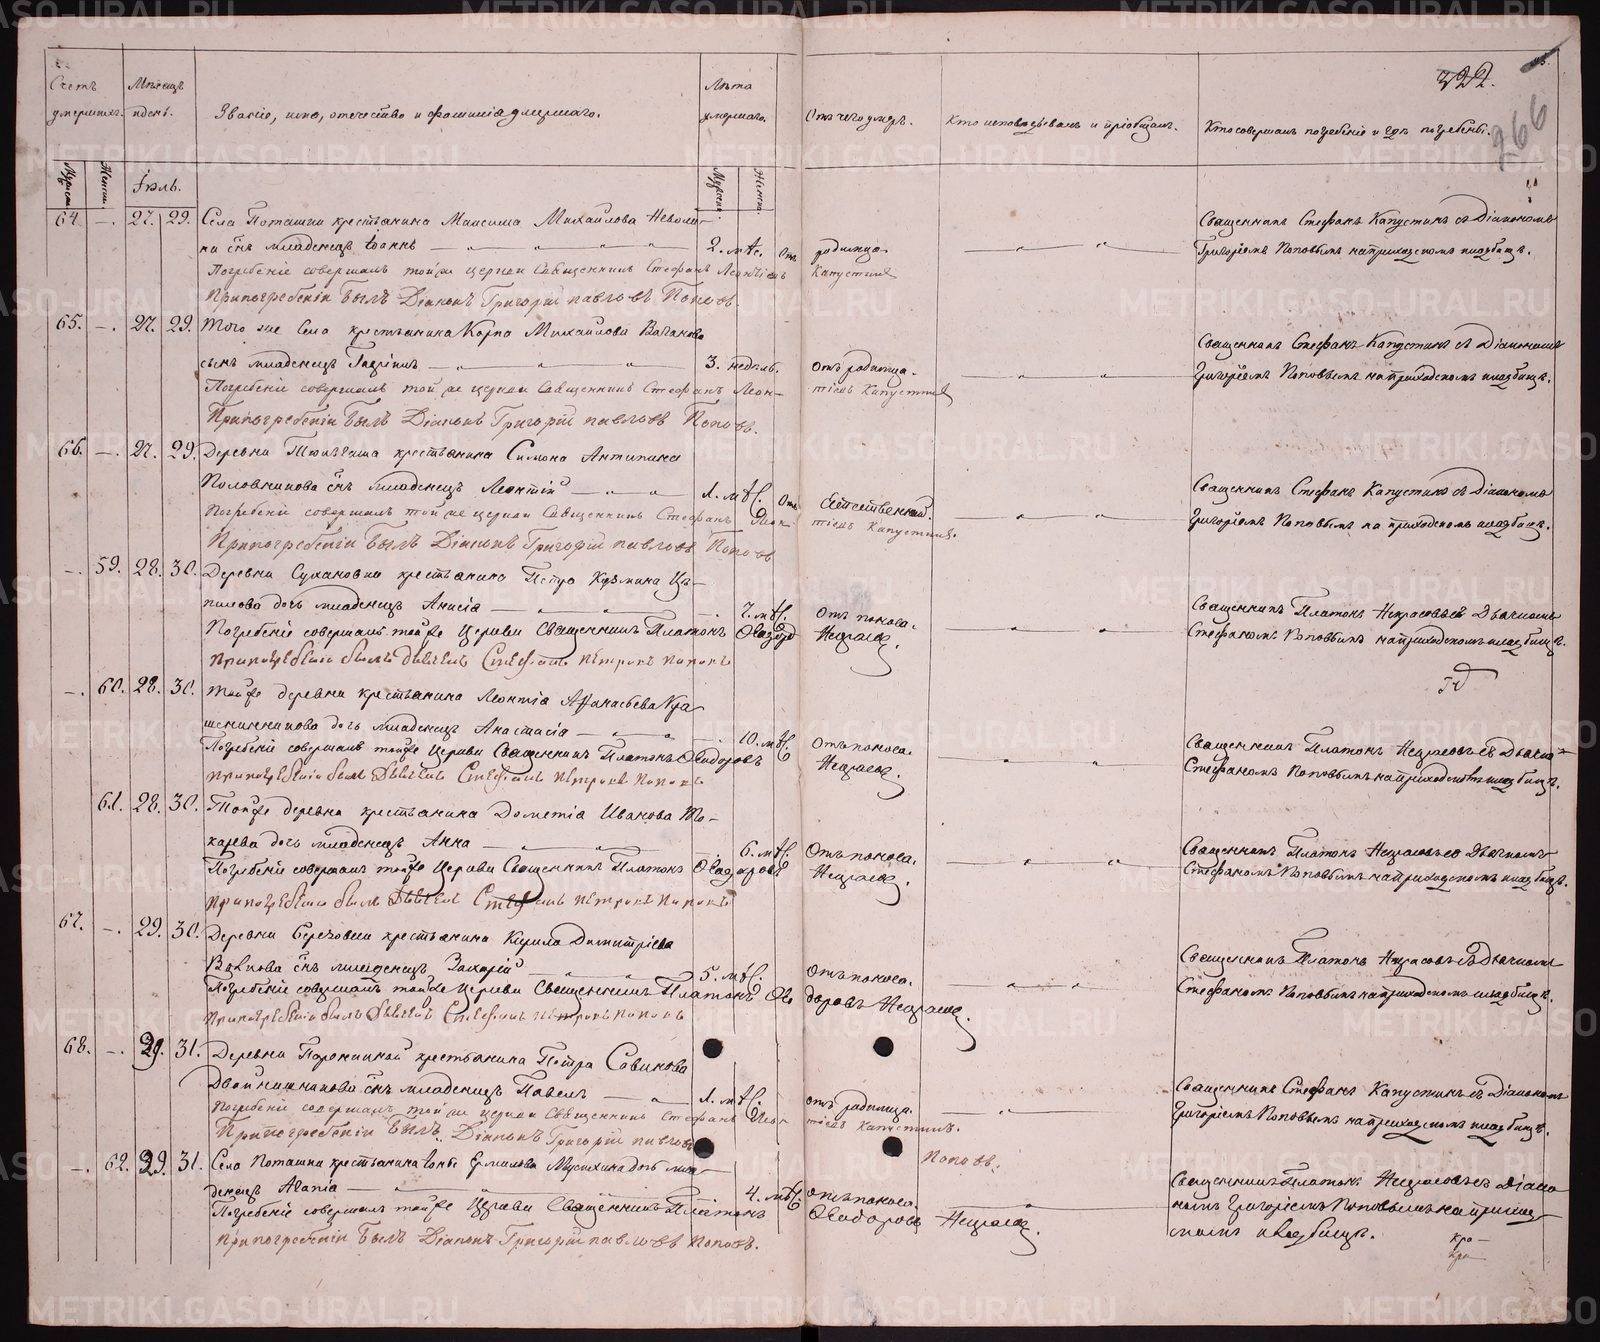 322.
266
Счетъ умершихъ.
Мѣсяцъ и день.
Званіе, имя, отечество и фамилія умершаго.
Лѣта умершаго.
Отъ чего умеръ.
Кто исповѣдывалъ и пріобщалъ.
Кто совершалъ погребеніе и гдѣ погребены.
Мужеск. Женск.
Іюль.
Мужеск. Женск.
64. —. 27. 29. Села Поташки крестьянина Максима Михайлова Неволи-
на сынъ младенецъ Іоаннъ 2. мѣс. Отъ родимца.
Погребеніе совершалъ той же церкви Священникъ Стефанъ Леонтіевъ Капустинъ
При погребеніи былъ Діаконъ Григорій Павловъ Поповъ
Священникъ Стефанъ Капустинъ съ Діакономъ
Григоріемъ Поповымъ на приходскомъ кладбищѣ.
65. —. 27. 29. Того же Села крестьянина Карпа Михайлова Ваганова
сынъ младенецъ 3. недѣль. Отъ родимца.
Погребеніе совершалъ той же церкви Священникъ Стефанъ Леон-
тіевъ Капустинъ
При погребеніи былъ Діаконъ Григорій Павловъ Поповъ.
Священникъ Стефанъ Капустинъ съ Діакономъ
Григоріемъ Поповымъ на приходскомъ кладбищѣ.
66. —. 27. 29. Деревни крестьянина Симона Антипина
Половникова сынъ младенецъ Леонтій 1. мѣс. Отъ Естественной.
Погребеніе совершалъ той же церкви Священникъ Стефанъ Леон-
тіевъ Капустинъ.
При погребеніи былъ Діаконъ Григорій Павловъ Поповъ
Священникъ Стефанъ Капустинъ съ Діакономъ
Григоріемъ Поповымъ на приходскомъ кладбищѣ.
—. 59. 28. 30. Деревни Сухановки крестьянина Петра Кузмина Ца-
пилова дочь младенецъ Анисія —. 7. мѣс. Отъ поноса.
Погребеніе совершалъ тойже Церкви Священникъ Платонъ Ѳеодоровъ Некрасовъ.
При погребеніи былъ Дьячекъ Стефанъ Петровъ Поповъ
Священникъ Платонъ Некрасовъ съ Дьячкомъ
Стефаномъ Поповымъ на приходскомъ кладбищѣ.
—. 60. 28. 30. Тойже деревни крестьянина Леонтія Афанасьева Кра-
шенинникова дочь младенецъ Анастасія —. 10. мѣс. Отъ поноса.
Погребеніе совершалъ тойже Церкви Священникъ Платонъ Ѳеодоровъ Некрасовъ.
При погребеніи былъ Дьячекъ Стефанъ Петровъ Поповъ
Священникъ Платонъ Некрасовъ съ Дьячко-
Стефаномъ Поповымъ на приходскомъ кладбищѣ.
61. 28. 30. Тойже деревни крестьянина Дометія Иванова То-
карева дочь младенецъ Анна —. 6. мѣс. Отъ поноса.
Погребеніе совершалъ тойже Церкви Священникъ Платонъ Ѳеодоровъ Некрасовъ.
При погребеніи былъ Дьячекъ Стефанъ Петровъ Поповъ
Священникъ Платонъ Некрасовъ съ Дьячкомъ
Стефаномъ Поповымъ на приходскомъ кладбищѣ.
67. —. 29. 30. Деревни Березовки крестьянина Кирила Димитріева
сынъ младенецъ Захарій 5. мѣс. Отъ поноса.
Погребеніе совершалъ тойже Церкви Священникъ Платонъ Ѳео
доровъ Некрасовъ.
При погребеніи былъ Дьячекъ Стефанъ Петровъ Поповъ
Священникъ Платонъ Некрасовъ съ Дьячкомъ
Стефаномъ Поповымъ на приходскомъ кладбищѣ.
68. —. 29. 31. Деревни крестьянина Петра Савинова
Двойнишникова сынъ младенецъ Павелъ 1. мѣс. отъ родимца.
Погребеніе совершалъ той же церкви Священникъ Стефанъ Леон-
тіевъ Капустинъ.
При погребеніи былъ Діаконъ Григорій Павловъ Поповъ.
Священникъ Стефанъ Капустинъ съ Діакономъ
Григоріемъ Поповымъ на приходскомъ кладбищѣ.
—. 62. 29. 31. Села Поташки крестьянина Іоны Ермилова дочь мла-
денецъ 4. мѣс. отъ поноса.
Погребеніе совершалъ тойже Церкви Священникъ Платонъ Ѳеодоровъ Некрасовъ.
При погребеніи былъ Діаконъ Григорій Павловъ Поповъ.
Священникъ Платонъ Некрасовъ съ Діако
номъ Григоріемъ Поповымъ на приход
скомъ кладбищѣ.
METRIKI.GASO-URAL.RU